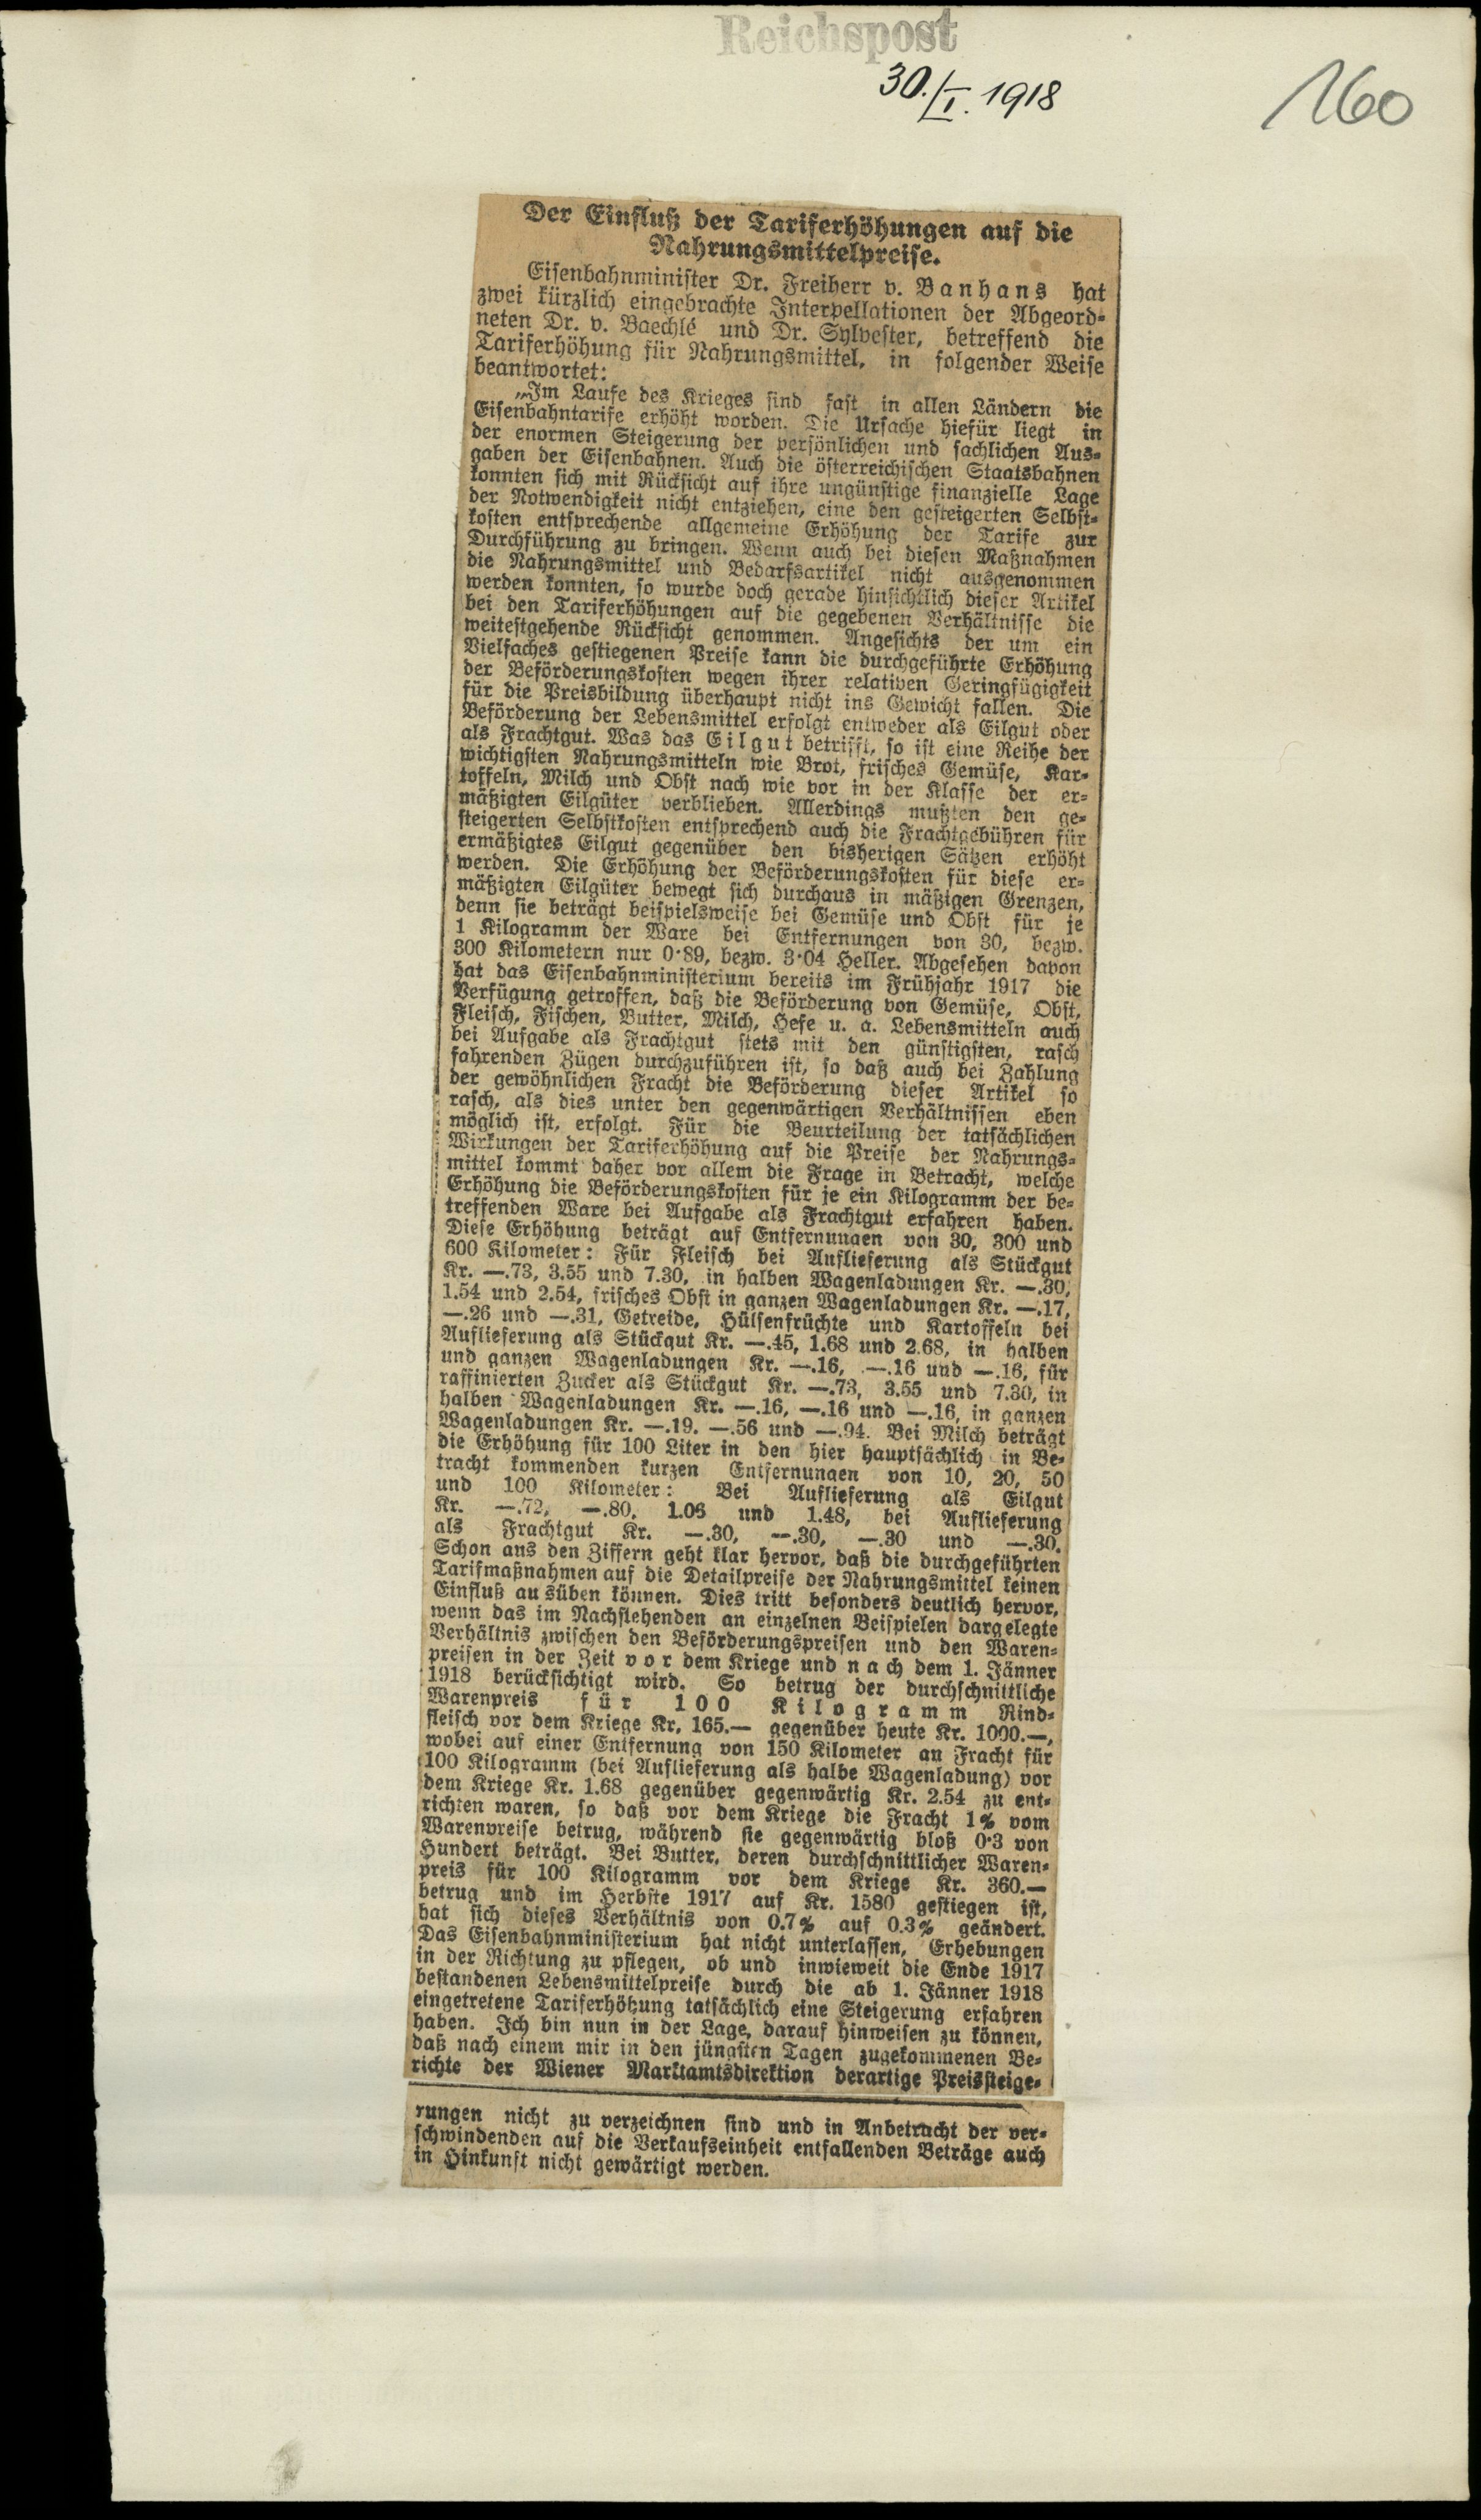 Reichspost
30./I. 1918
160
Der Einfluß der Tariferhöhungen auf die
Nahrungsmittelpreise.
Eisenbahnminister Dr. Freiherr v. Banhans hat
zwei kürzlich eingebrachte Interpellationen der Abgeord-
neten Dr. v. Baechlé und Dr. Sylvester, betreffend die
Tariferhöhung für Nahrungsmittel, in folgender Weise
beantwortet:
„Im Laufe des Krieges sind fast in allen Ländern die
Eisenbahntarife erhöht worden. Die Ursache hiefür liegt in
der enormen Steigerung der persönlichen und sachlichen Aus-
gaben der Eisenbahnen. Auch die österreichischen Staatsbahnen
konnten sich mit Rücksicht auf ihre ungünstige finanzielle Lage
der Notwendigkeit nicht entziehen, eine den gesteigerten Selbst-
kosten entsprechende allgemeine Erhöhung der Tarife zur
Durchführung zu bringen. Wenn auch bei diesen Maßnahmen
die Nahrungsmittel und Bedarfsartikel nicht ausgenommen
werden konnten, so wurde doch gerade hinsichtlich dieser Artikel
bei den Tariferhöhungen auf die gegebenen Verhältnisse die
weitestgehende Rücksicht genommen. Angesichts der um ein
Vielfaches gestiegenen Preise kann die durchgeführte Erhöhung
der Beförderungskosten wegen ihrer relativen Geringfügigkeit
für die Preisbildung überhaupt nicht ins Gewicht fallen. Die
Beförderung der Lebensmittel erfolgt entweder als Eilgut oder
als Frachtgut. Was das Eilgut betrifft, so ist eine Reihe der
wichtigsten Nahrungsmitteln wie Brot, frisches Gemüse, Kar-
toffeln, Milch und Obst nach wie vor in der Klasse der er-
mäßigten Eilgüter verblieben. Allerdings mußten den ge-
steigerten Selbstkosten entsprechend auch die Frachtgebühren für
ermäßigtes Eilgut gegenüber den bisherigen Sätzen erhöht
werden. Die Erhöhung der Beförderungskosten für diese er-
mäßigten Eilgüter bewegt sich durchaus in mäßigen Grenzen,
denn sie beträgt beispielsweise bei Gemüse und Obst für je
1 Kilogramm der Ware bei Entfernungen von 30, bezw.
300 Kilometern nur 0·89, bezw. 3·04 Heller. Abgesehen davon
hat das Eisenbahnministerium bereits im Frühjahr 1917 die
Verfügung getroffen, daß die Beförderung von Gemüse, Obst,
Fleisch, Fischen, Butter, Milch, Hefe u. a. Lebensmitteln auch
bei Aufgabe als Frachtgut stets mit den günstigsten, rasch
fahrenden Zügen durchzuführen ist, so daß auch bei Zahlung
der gewöhnlichen Fracht die Beförderung dieser Artikel so
rasch, als dies unter den gegenwärtigen Verhältnissen eben
möglich ist, erfolgt. Für die Beurteilung der tatsächlichen
Wirkungen der Tariferhöhung auf die Preise der Nahrungs-
mittel kommt daher vor allem die Frage in Betracht, welche
Erhöhung die Beförderungskosten für je ein Kilogramm der be-
treffenden Ware bei Aufgabe als Frachtgut erfahren haben.
Diese Erhöhung beträgt auf Entfernungen von 30, 300 und
600 Kilometer: Für Fleisch bei Auflieferung als Stückgut
Kr. —.73, 3.55 und 7.30, in halben Wagenladungen Kr. —.30,
1.54 und 2.54, frisches Obst in ganzen Wagenladungen Kr. —.17,
—.26 und —.31, Getreide, Hülsenfrüchte und Kartoffeln bei
Auflieferung als Stückgut Kr. —.45, 1.68 und 2.68, in halben
und ganzen Wagenladungen Kr. —.16, —.16 und —.16, für
raffinierten Zucker als Stückgut Kr. —.73, 3.55 und 7.30, in
halben Wagenladungen Kr. —.16, —.16 und —.16, in ganzen
Wagenladungen Kr. —.19. —.56 und —.94. Bei Milch beträgt
die Erhöhung für 100 Liter in den hier hauptsächlich in Be-
tracht kommenden kurzen Entfernungen von 10, 20, 50
und 100 Kilometer: Bei Auflieferung als Eilgut
Kr. —.72, —.80, 1.06 und 1.48, bei Auflieferung
als Frachtgut Kr. —.30, —.30, —.30 und —.30.
Schon ans den Ziffern geht klar hervor, daß die durchgeführten
Tarifmaßnahmen auf die Detailpreise der Nahrungsmittel keinen
Einfluß ausüben können. Dies tritt besonders deutlich hervor,
wenn das im Nachstehenden an einzelnen Beispielen dargelegte
Verhältnis zwischen den Beförderungspreisen und den Waren-
preisen in der Zeit vor dem Kriege und nach dem 1. Jänner
1918 berücksichtigt wird. So betrug der durchschnittliche
Warenpreis für 100 Kilogramm Rind-
fleisch vor dem Kriege Kr. 165.— gegenüber heute Kr. 1000.—,
wobei auf einer Entfernung von 150 Kilometer an Fracht für
100 Kilogramm (bei Auflieferung als halbe Wagenladung) vor
dem Kriege Kr. 1.68 gegenüber gegenwärtig Kr. 2.54 zu ent-
richten waren, so daß vor dem Kriege die Fracht 1% vom
Warenpreise betrug, während sie gegenwärtig bloß 0·3 von
Hundert beträgt. Bei Butter, deren durchschnittlicher Waren-
preis für 100 Kilogramm vor dem Kriege Kr. 360.—
betrug und im Herbste 1917 auf Kr. 1580 gestiegen ist,
hat sich dieses Verhältnis von 0.7% auf 0.3% geändert.
Das Eisenbahnministerium hat nicht unterlassen, Erhebungen
in der Richtung zu pflegen, ob und inwieweit die Ende 1917
bestandenen Lebensmittelpreise durch die ab 1. Jänner 1918
eingetretene Tariferhöhung tatsächlich eine Steigerung erfahren
haben. Ich bin nun in der Lage, darauf hinweisen zu können,
daß nach einem mir in den jüngsten Tagen zugekommenen Be-
richte der Wiener Marktamtsdirektion derartige Preissteige-
rungen nicht zu verzeichnen sind und in Anbetracht der ver-
schwindenden auf die Verkaufseinheit entfallenden Beträge auch
in Hinkunft nicht gewärtigt werden.